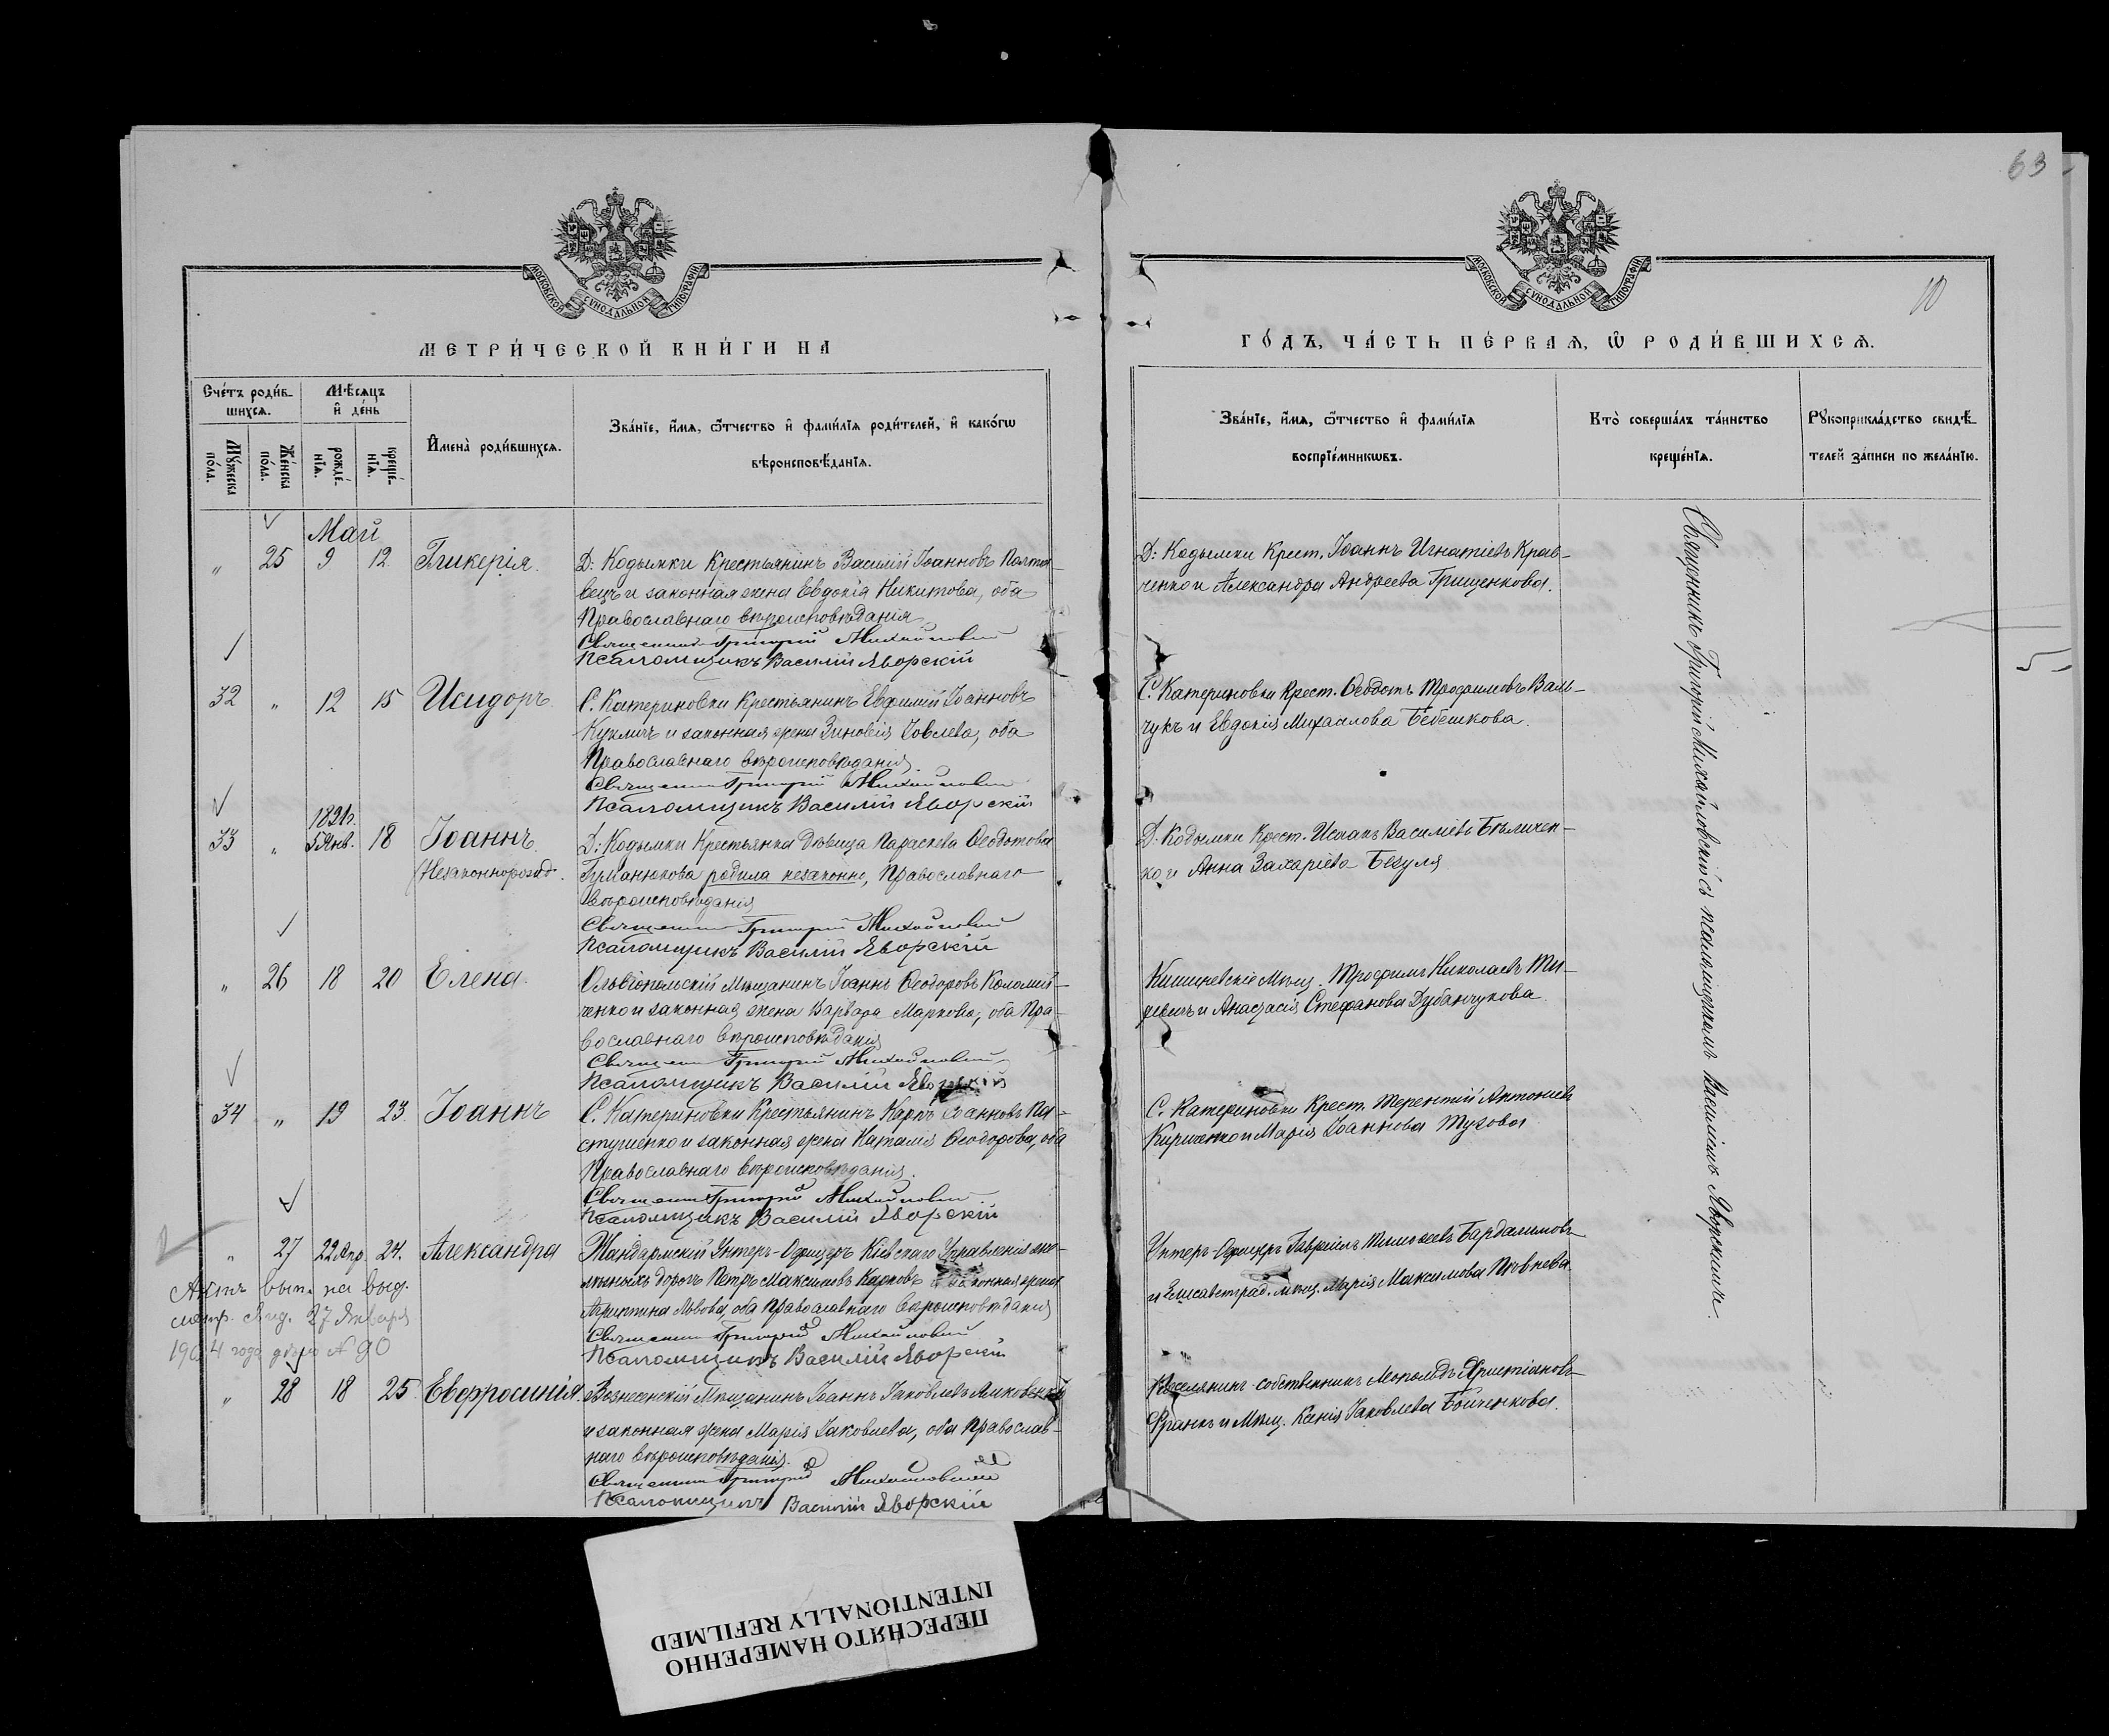 63
10
МОСКОВСКОЙ СѴНОДАЛЬНОЙ ТИПОГРАФІИ
МОСКОВСКОЙ СѴНОДАЛЬНОЙ ТИПОГРАФІИ
МЕТРИ́ЧЕСКОЙ КНИ́ГИ НА
ГО́ДЪ, ЧА́СТЬ ПЕ́РВАѦ, Ѡ҆ РОДИ́ВШИХСѦ.
Сче́тъ роди́в-
шихсѧ.
Мѣ́сѧцъ
и҆ де́нь
Мꙋ́жеска
по́ла.
Же́нска
по́ла.
рожде́-
нїѧ.
креще́-
нїѧ.
И҆мена̀ роди́вшихсѧ.
Зва́нїе, и҆́мѧ, ѻ҆́тчество и҆ фами́лїѧ роди́телей, и҆ како́гѡ
вѣроисповѣ́данїѧ.
Зва́нїе, и҆́мѧ, ѻ҆́тчество и҆ фами́лїѧ
воспрїе́мникѡвъ.
Кто̀ соверша́лъ та́инство
креще́нїѧ.
Рꙋкоприкла́дство свидѣ́-
телей за́писи по жела́нїю.
Май
„ 25 9 12 Гликерія.
Д: Кодымки Крестьянинъ Василій Іоанновъ Полто-
вецъ и законная жена Евдокія Никитова, оба
Православнаго вѣроисповѣданія
Священникъ Григорій Михайловскій
Псаломщикъ Василій Яворскій
Д: Кодымки Крест. Іоаннъ Игнатіевъ Крав-
ченко и Александра Андреева Грищенкова.
32 „ 12 15 Исидоръ.
С. Катериновки Крестьянинъ Евфимій Іоанновъ
и законная жена Зиновія Іовлева, оба
Православнаго вѣроисповѣданія
Священникъ Григорій Михайловскій
Псаломщикъ Василій Яворскій
С. Катериновки Крест. Ѳеодотъ Трофимовъ Валь-
чукъ и Евдокія Михаилова Бебешкова.
1891г.
33 „ 5 Янв. 18 Іоаннъ.
(Незаконнорожд.
Д: Кодымки Крестьянка Дѣвица Параскева Ѳеодотова
Гуманюкова родила незаконно, Православнаго
вѣроисповѣданія
Священникъ Григорій Михайловскій
Псаломщикъ Василій Яворскій
Д: Кодымки Крест. Исаакъ Василіевъ Бѣличен-
ко и Анна Захаріева Безуля
„ 26 18 20 Елена.
Ольвіопольскій Мѣщанинъ Іоаннъ Ѳеодоровъ Коломій-
ченко и законная жена Варвара Маркова, оба Пра-
вославнаго вѣроисповѣданія
Священникъ Григорій Михайловскій
Псаломщикъ Василій Яворскій
Кишиневскіе Мѣщ. Трофимъ Николаевъ
и Анастасія Стефанова Дубанчукова
34 „ 19 23 Іоаннъ
С. Катериновки Крестьянинъ Карпъ Іоанновъ Па-
стушенко и законная жена Наталія Ѳеодорова, оба
Православнаго вѣроисповѣданія.
Священникъ Григорій Михайловскій
Псаломщикъ Василій Яворскій
С. Катериновки Крест. Терентій Антоніевъ
Кириченко и Марія Іоаннова Тузова
„ 27 22 Апр. 24. Александра
Жандармскій Унтеръ-Офицеръ Кіевскаго Управленія же-
лѣзныхъ дорогъ Петръ Максимовъ Карповъ и законная жена
Агриппина Львова, оба Православнаго вѣроисповѣданія
Священникъ Григорій Михайловскій
Псаломщикъ Василій Яворскій
Унтеръ-Офицеръ Гавріилъ Бардалимовъ
и Елисаветград. мѣщ. Марія Максимова
Актъ вып. на выд.
метр. свид. 27 Января
1904 года № 90
„ 28 18 25. Евфросинія.
Вознесенскій Мѣщанинъ Іоаннъ Іаковлевъ
и законная жена Марія Іаковлева, оба Православ-
наго вѣроисповѣданія.
Священникъ Григорій Михайловскій
Псаломщикъ Василій Яворскій
Поселянинъ-собственникъ Леопольдъ Христіановъ
Франкъ и Мѣщ. Ксенія Іаковлева Бойченкова.
Священникъ Григорій Михайловскій съ псаломщикомъ Василіемъ Яворскимъ.
5
ПЕРЕСНЯТО НАМЕРЕННО
INTENTIONALLY REFILMED